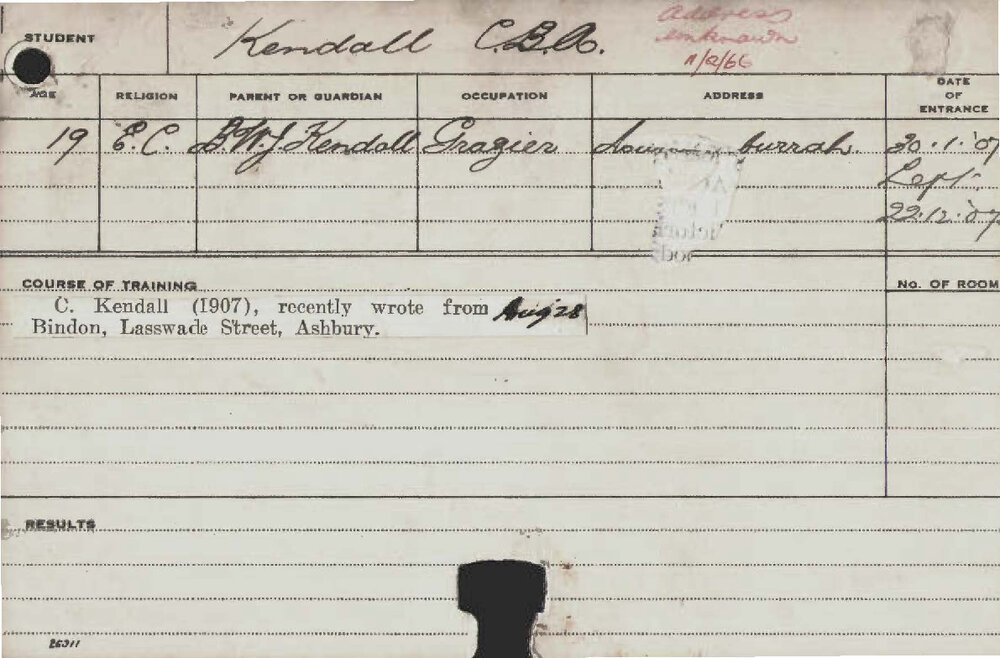 STUDENT
Kendall C.B.A.
Address
unknown
11/2/66
AGE
RELIGION
PARENT OR GUARDIAN
OCCUPATION
ADDRESS
DATE
OF
ENTRANCE
19 E.C. B.W.J. Kendall Grazier burrah. 30.1.'07
Left
22.12.'07
COURSE OF TRAINING
No. OF ROOM
C. Kendall (1907), recently wrote from Aug 28
Bindon, Lasswade Street, Ashbury.
RESULTS